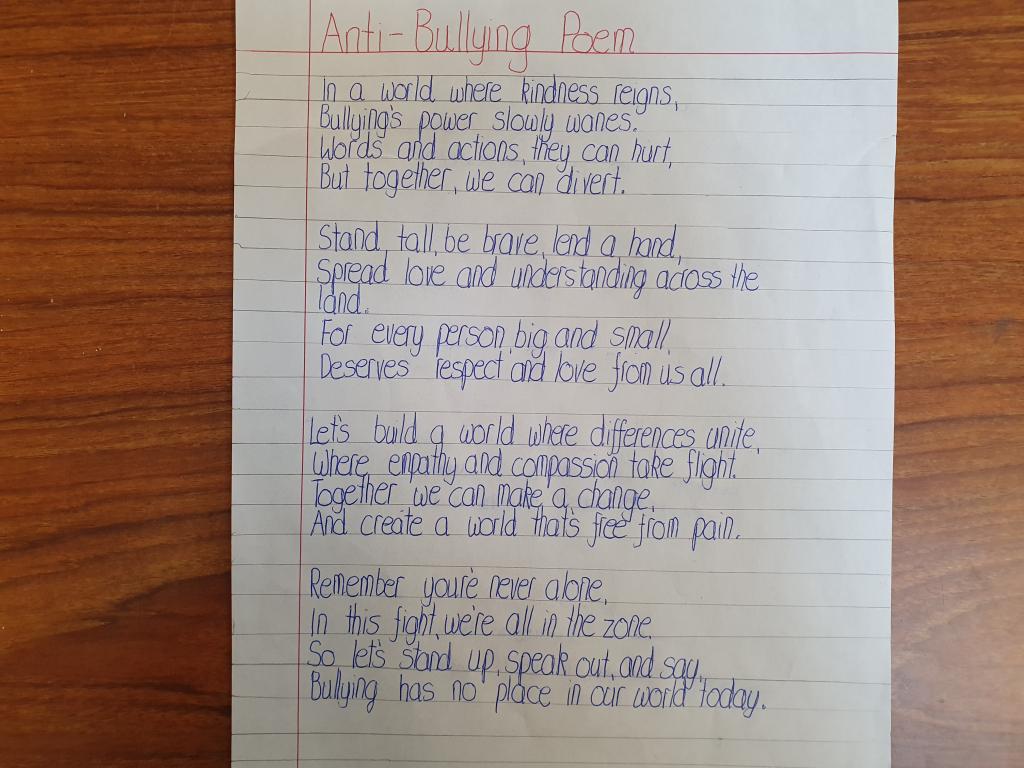 Anti-Bullying Poem
In a world where kindness reigns,
Bullying's power slowly wanes.
Words and actions, they can hurt,
But together, we can divert.
Stand tall, be brave, lend a hand,
Spread love and understanding across the
land.
For every person, big and small,
Deserves respect and love from us all.
Let's build a world where differences unite,
Where empathy and compassion take flight.
Together we can make a change,
And create a world that's free from pain.
Remember you're never alone,
In this fight, we're all in the zone.
So let's stand up, speak out, and say,
Bullying has no place in our world today.